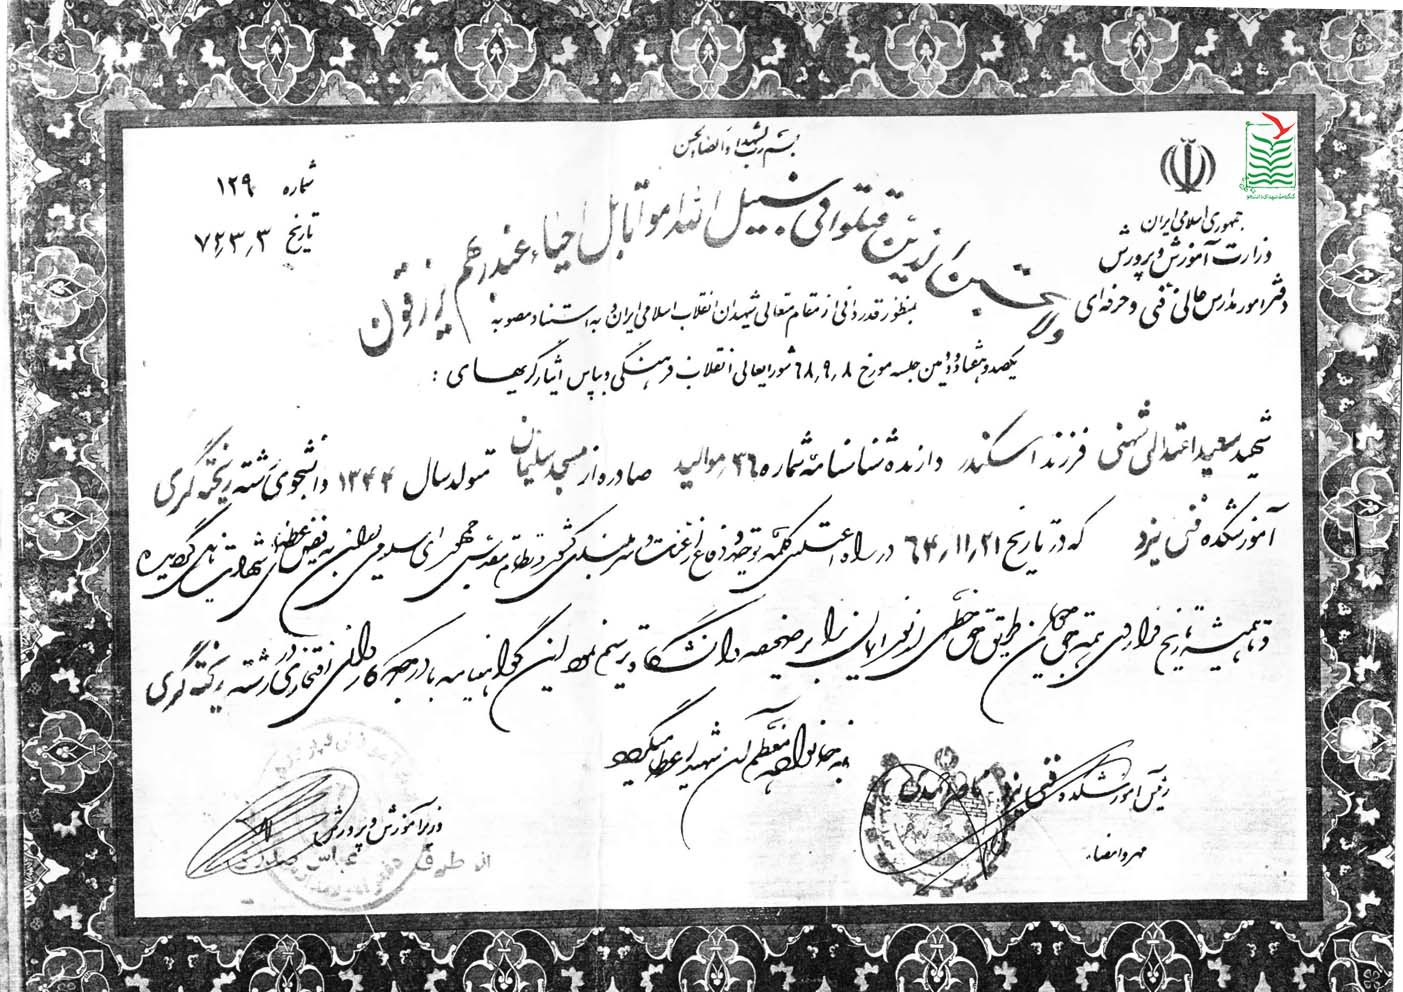 بسم رب الشهداء
شماره ۱۲۹
تاریخ ۷۲٫۳٫۳
جمهوری اسلامی ایران
وزارت آموزش و پرورش
دفتر امور مدارس عالی فنی و حرفه‌ای
ولا تحسبن الذین قتلوا فی سبیل الله امواتا بل احیاء عند ربهم یرزقون
بمنظور قدردانی از مقام متعالی شهیدان انقلاب اسلامی ایران و به استناد مصوبه
یکصد و هفتاد و دومین جلسه مورخ ۶۸٫۹٫۸ شورایعالی انقلاب فرهنگی و بپاس ایثارگریهای :
شهید سعید اعتدالی شهنی فرزند اسکندر دارنده شناسنامه شماره ۳۶ موالید صادره از مسجد سلیمان متولد سال ۱۳۴۴ دانشجوی رشته ریخته گری
آموزشکده فنی یزد که در تاریخ ۶۴٫۱۱٫۲۱ در راه اعتلای کلمه توحید و دفاع از عزت و سربلندی کشور و نظام مقدس جمهوری اسلامی ایران به فیض عظمای شهادت نایل گردیده
و تا همیشه تاریخ فرا روی همه رهجویان طریق حق خطی از نور ایمان را بر صفحه دانشگاه ترسیم نمود این گواهینامه با درجه کاردانی افتخاری در رشته ریخته گری
به خانواده معظم آن شهید اعطا میگردد
رئیس آموزشکده فنی یزد
مهر و امضاء
وزیر آموزش و پرورش
از طرف عباس صدری